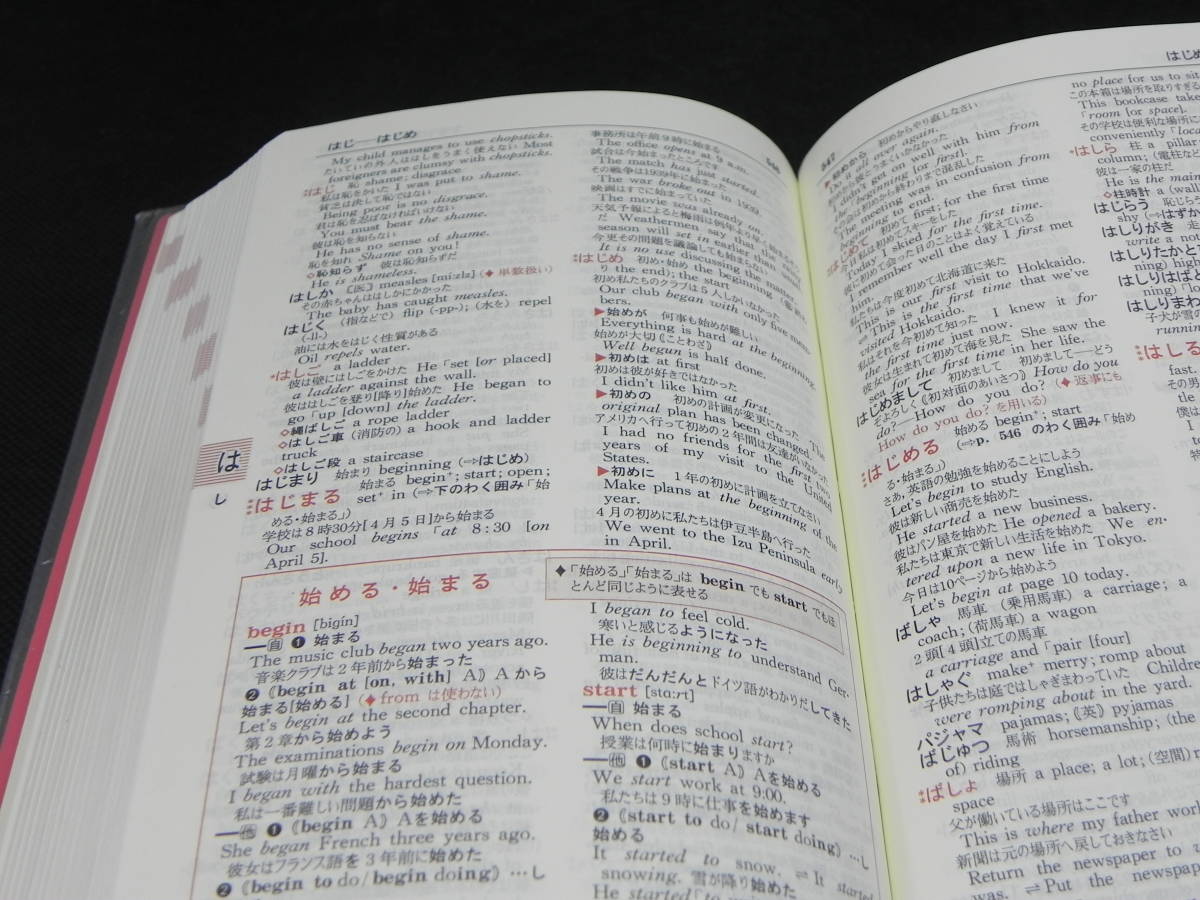 はじ——はじめ
My child manages to use chopsticks.
たいていの外人ははしをうまく使えない Most
foreigners are clumsy with chopsticks.
はじ 恥 shame; disgrace
私は恥をかいた I was put to shame.
貧乏は決して恥ではない
Being poor is no disgrace.
君は恥を忍ばなければいけない
You must bear the shame.
彼は恥を知らない
He has no sense of shame.
恥を知れ Shame on you!
◇恥知らず 彼は恥知らずだ
He is shameless.
はしか 〖医〗 measles [míːzlz] (♦単数扱い)
その赤ちゃんははしかにかかった
The baby has caught measles.
はじく (指などで) flip (-pp-); (水を) repel
(-ll-)
油には水をはじく性質がある
Oil repels water.
*はしご a ladder
彼は壁にはしごをかけた He「set [or placed]
a ladder against the wall.
彼ははしごを登り[降り]始めた He began to
go「up [down] the ladder.
◇縄ばしご a rope ladder
◇はしご車 (消防の) a hook and ladder
truck
◇はしご段 a staircase
はじまり 始まり beginning (⇒はじめ)
はじまる 始まる begin⁺; start; open;
set⁺ in (⇒下のわく囲み「始
める・始まる」)
学校は8時30分[4月5日]から始まる
Our school begins「at 8:30 [on
April 5].
は
し
546
事務所は午前9時に始まる
The office opens at 9 a.m.
試合は今始まったところです
The match has just started.
その戦争は1939年に始まった
The war broke out in 1939.
映画はすでに始まっていた
The movie was already on.
天気予報によると梅雨は例年より早く始まるそう
だ Weathermen say that the rainy
season will set in earlier than usual.
今更その問題を議論しても始まらない
It is no use discussing the matter.
はじめ 初め・始め the beginning (⇔終わ
り the end); the start
初め私たちのクラブは5人しかいなかった
Our club began with only five mem-
bers.
▶始めが 何事も始めが難しい
Everything is hard at the beginning.
始めが大切《ことわざ》
Well begun is half done.
▶初めは at first
初めは彼が好きではなかった
I didn't like him at first.
▶初めの 初めの計画が変更になった The
original plan has been changed.
アメリカへ行って初めの2年間は友達がいなかった
I had no friends for the first two
years of my visit to the United
States.
▶初めに 1年の初めに計画を立てなさい
Make plans at the beginning of the
year.
4月の初めに私たちは伊豆半島へ行った
We went to the Izu Peninsula early
in April.
始める・始まる
♦「始める」「始まる」は begin でも start でもほ
とんど同じように表せる
begin [bigín]
—自 ❶ 始まる
The music club began two years ago.
音楽クラブは2年前から始まった
❷ 《begin at [on, with] A》 Aから
始まる[始める] (♦from は使わない)
Let's begin at the second chapter.
第2章から始めよう
The examinations begin on Monday.
試験は月曜から始まる
I began with the hardest question.
私は一番難しい問題から始めた
—他 ❶ 《begin A》 Aを始める
She began French three years ago.
彼女はフランス語を3年前に始めた
❷ 《begin to do / begin doing》 …し
I began to feel cold.
寒いと感じるようになった
He is beginning to understand Ger-
man.
彼はだんだんとドイツ語がわかりだしてきた
start [stɑːrt]
—自 始まる
When does school start?
授業は何時に始まりますか
—他 ❶ 《start A》 Aを始める
We start work at 9:00.
私たちは9時に仕事を始めます
❷ 《start to do / start doing》 …し
始める
It started to snow. ⇌ It started
snowing. 雪が降り始めた
He started「to
547
はじめ
▶始めから 初めからやり直しなさい
Do it all over again.
didn't get on well with him from
the beginning [or first].
The meeting was in confusion from
beginning to end.
はじめて 初めて first; for the first time
Today I skied for the first time.
彼に初めて会った日のことはよく覚えている
I remember well the day I first met
him.
私たちは今度初めて北海道に来た
This is our first visit to Hokkaido.
⇌ This is the first time that we've
visited Hokkaido.
私はそれを今初めて知った I knew it for
the first time just now.
彼女は生まれて初めて海を見た She saw the
sea for the first time in her life.
はじめまして 初めまして 初めまして—どう
ぞよろしく《初対面のあいさつ》How do you
do?—How do you do? (♦返事にも
How do you do? を用いる)
はじめる 始める begin⁺; start
(⇒p. 546 のわく囲み「始め
る・始まる」)
さあ, 英語の勉強を始めることにしよう
Let's begin to study English.
彼は新しい商売を始めた
He started a new business.
彼はパン屋を始めた He opened a bakery.
私たちは東京で新しい生活を始めた We en-
tered upon a new life in Tokyo.
今日は10ページから始めよう
Let's begin at page 10 today.
ばしゃ 馬車 (乗用馬車) a carriage; a
coach; (荷馬車) a wagon
2頭[4頭]立ての馬車
a carriage and「pair [four]
はしゃぐ make⁺ merry; romp about
子供たちは庭ではしゃぎまわっていた Children
were romping about in the yard.
パジャマ pajamas; 《英》 pyjamas
ばじゅつ 馬術 horsemanship; (the
of) riding
ばしょ 場所 a place; a lot; (空間)
space
父が働いている場所はここです
This is where my father wor
新聞は元の場所へ戻しておきなさい
Return the newspaper to
was. ⇌ Put the newspap
no place for us to sit
この本箱は場所を取りすぎる
This bookcase take
「room [or space].
その学校は便利な場所に
conveniently「loca
はしら 柱 a pillar
column; (電柱など
彼は一家の柱だ
He is the main
◇柱時計 a (wall
はじらう 恥じらう
shy (⇒はずか
はしりがき 走
write a not
はしりたかと
ning) high
はしりはば
ning)「lo
はしりまわ
子犬が雪の
runnin
はしる
fast.